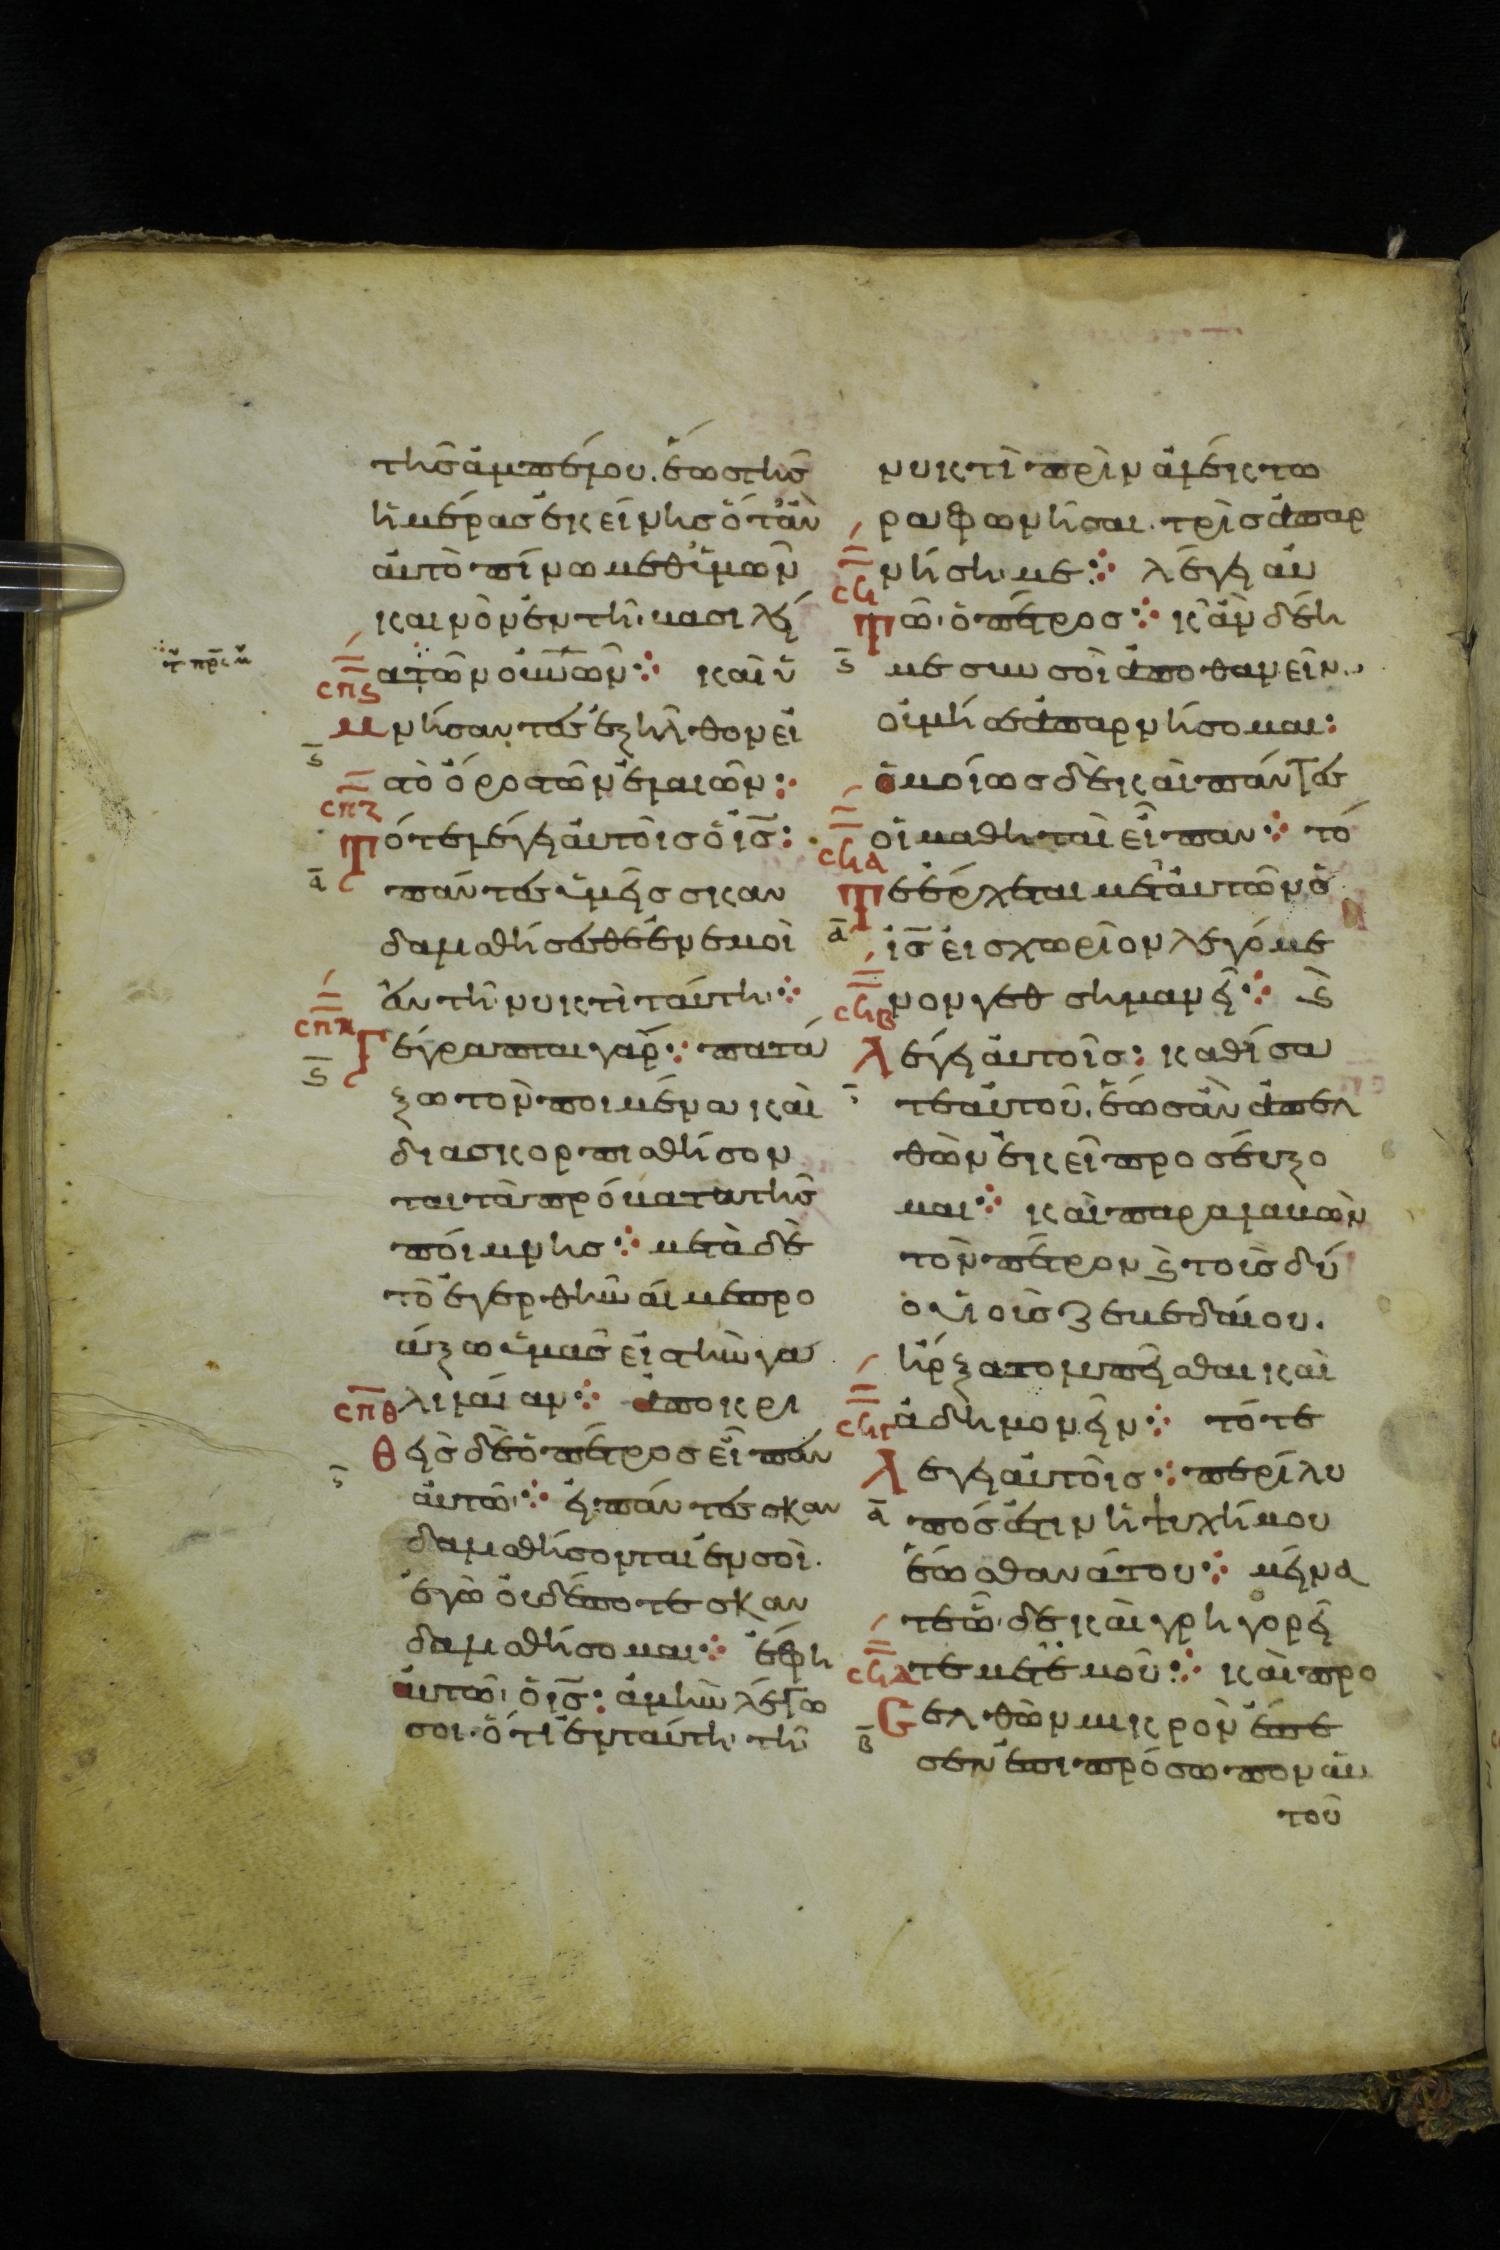 τῆς ἀμπέλου. ἕως τῆς
ἡμέρας ἐκείνης ὅτἂν
ἀυτὸ πίνω μεθ ὑμῶν
καινὸν ἐν τῆ βασιλεί
α τῶν οὐνῶν ⁘ καὶ ὑ
σπς
μνήσαντες ἐξῆλθον εἰ
ς
σ τὸ ὄρος τῶν ἐλαιῶν ⁘
σπζ
Τότε λέγει ἀυτοῖς ὁ ις :
α
πάντες ὑμεῖς σκαν
δαλισθήσεσθε ἐν εμοὶ
ἐν τῆ νυκτὶ ταύτη ⁘
σπη
Γέγραπται γάρ ⁘ πατά
ς
ξω τὸν ποιμένα καὶ
διασκορπισθήσον
ται τὰ πρόβατα τῆς
ποίμνης ⁘ μετὰ δὲ
τὸ ἐγερθῆναί με προ
άξω ὑμᾶς εἰς τὴν γα
λιλαίαν ⁘ ἀποκρι
σπθ
θεὶς δὲ ὁ πέτρος εἶπεν
ς
ἀυτῶ ⁘ εἰ πάντες σκαν
δαλισθήσονται ἐν σοὶ.
ἐγὼ οὐδέποτε σκαν
δαλισθήσομαι ⁘ ἔφη
ἀυτῶ ὁ ις : ἀμὴν λέγω
σοι. ὅτι ἐν ταύτη τῆ
νυκτὶ πρὶν ἀλέκτω
ρα φωνῆσαι. τρὶς ἀπαρ
νήση με ⁘ λέγει αυ
ση
Τῶ ὁ πέτρος ⁘ κἂν δέη
ς
με συν σοὶ ἀποθανεῖν.
οὐ μή σε ἀπαρνήσομαι :
ὁμοίως δὲ καὶ πάντες
οἱ μαθηταὶ εἶπαν ⁘ τό
σηα
Τε ἔρχεται μετ ἀυτῶν ὁ
α
ις εἰς χωρίον λεγόμε
νον γεθσημανεῖ ⁘ ϛ
σηβ
Λέγει ἀυτοῖς : καθίσα
τε ἀυτοῦ. ἕως ἂν ἀπελ
θὼν ἐκεῖ προσέυξο
μαι ⁘ καὶ παραλαβὼν
τὸν πέτρον ϛ τοὺς δύ
ο υἱοὺς ζεβεδαίου.
ἤρξατο λυπεῖσθαι καὶ
ἀδημονεῖν ⁘ τότε
σηγ
Λέγει ἀυτοῖς ⁘ περίλυ
α
πός ἐστιν ἡ ψυχή μου
ἕως θανάτου ⁘ μείνα
τε ὧδε καὶ γρηγορεῖ
τε μετ ἐμοῦ ⁘ καὶ προ
σηδ
Ελθὼν μικρὸν ἔπε
β
σεν ἐπι πρόσωπον ἀυ
τοῦ